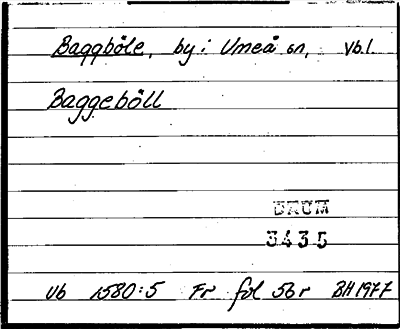 Baggböle, by i Umeå sn, Vb.l
Baggeböll
DAUM
3435
Vb 1580:5 Fr fol 56 r BH 1977